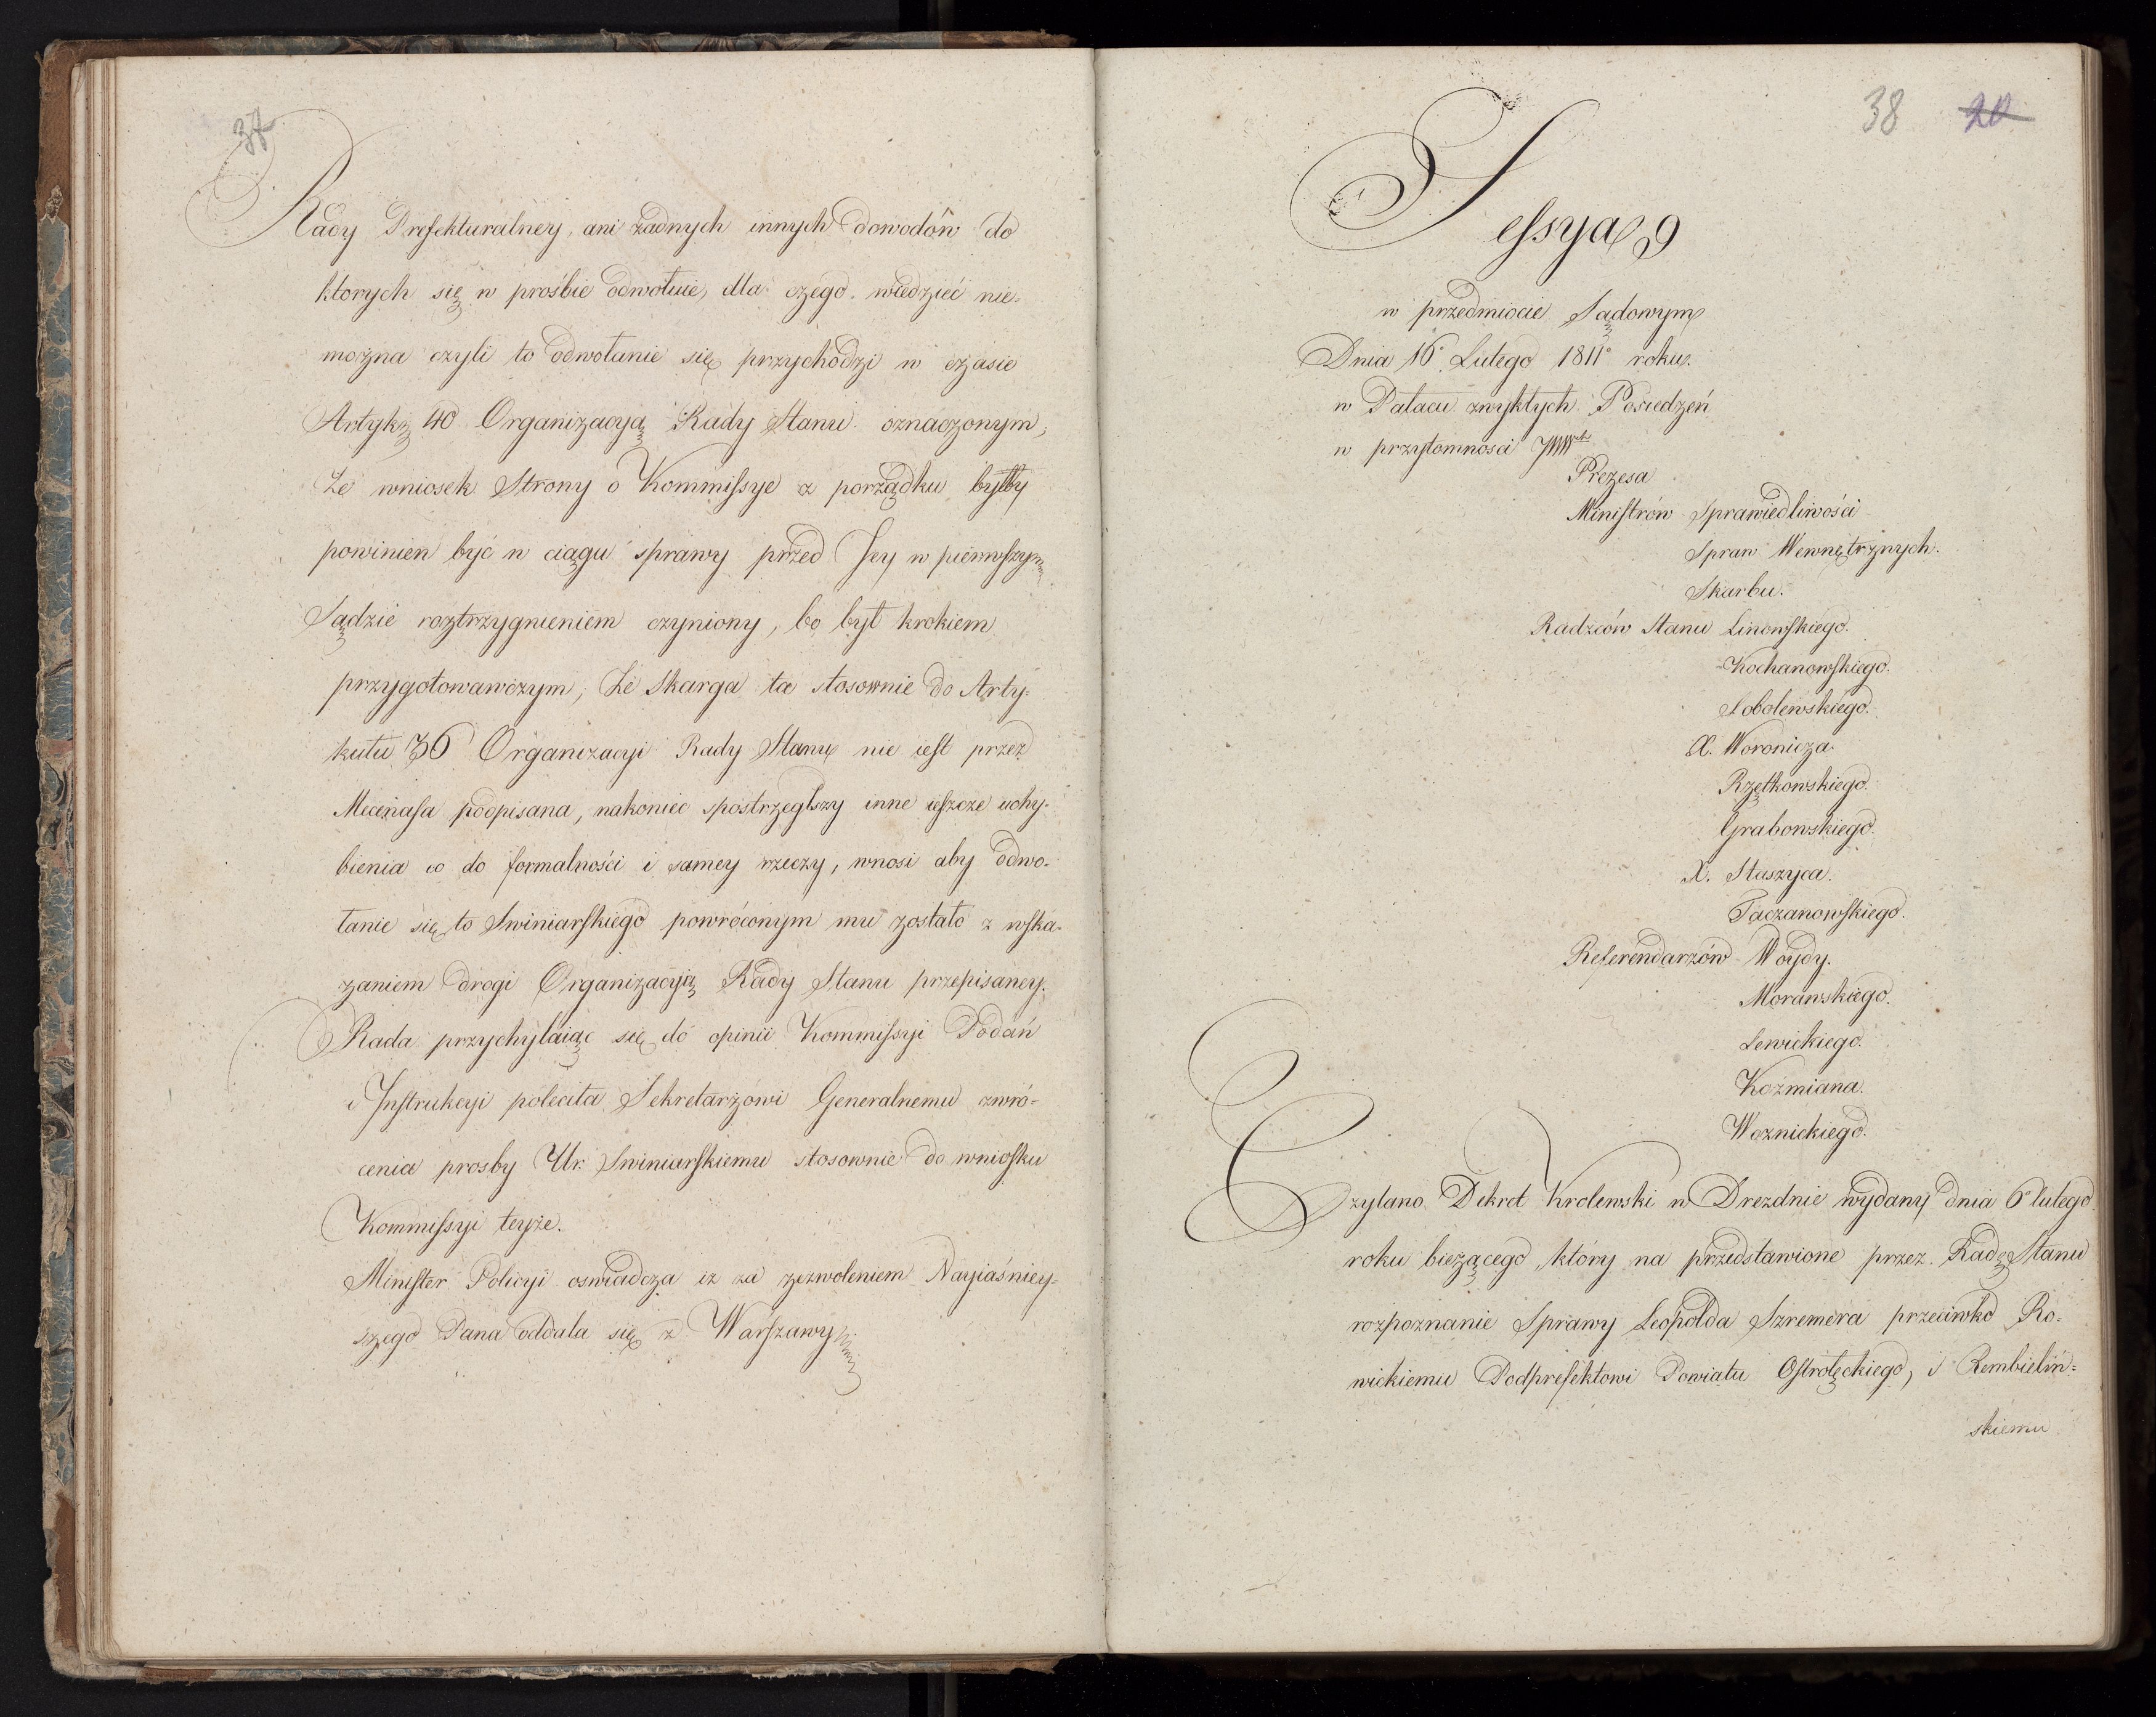 37
Rady Prefekturalney, ani żadnych innych dowodów do
ktorych się w prośbie odwołuie, dla czego wiedzieć nie-
można czyli to odwołanie się przychodzi w czasie
Artykę 40 Organizacyą Rady Stanu oznaczonym,
Że wniosek Strony o Kommissye z porządku byłby
powinien być w ciągu sprawy przed Jey w pierwszym
Sądzie roztrzygnieniem czyniony, bo był krokiem
przygotowawczym, Że Skarga ta stosownie do Arty-
kułu 36 Organizacyi Rady Stanu nie iest przez
Mecenasa podpisana, nakoniec spostrzegłszy inne ieszcze uchy-
bienia co do formalności i samey rzeczy, wnosi aby odwo-
łanie się to Swiniarskiego powróconym mu zostało z wska-
zaniem drogi Organizacyią Rady Stanu przepisaney.
Rada przychylaiąc się do opinii Kommissyi Podań
i Instrukcyi poleciła Sekretarzowi Generalnemu zwró-
cenia prosby Ur. Swiniarskiemu stosownie do wniosku
Kommissyi teyże.
Minister Policyi oswiadcza iż za zezwoleniem Nayiaśniey-
szego Pana oddala się z Warszawy
38 20
Sessya 9
w przedmiocie Sądowym
Dnia 16° Lutego 1811° roku.
w Pałacu zwykłych Posiedzeń
w przytomnosci
Prezesa
Ministrów Sprawiedliwości
Spraw Wewnętrznych.
Skarbu.
Radzców Stanu Linowskiego.
Kochanowskiego.
Sobolewskiego.
X. Woronicza.
Rzętkowskiego.
Grabowskiego.
X. Staszyca.
Taczanowskiego.
Referendarzów Woydy.
Morawskiego.
Lewickiego.
Koźmiana.
Woznickiego.
Czytano Dekret Krolewski w Dreznie wydany dnia 6° lutego
roku bieżącego, który na przedstawione przez Radę Stanu
rozpoznanie Sprawy Leopolda Szremera przeciwko Ro-
wickiemu Podprefektowi Powiatu Ostrołęckiego, i Rembieliń-
skiemu